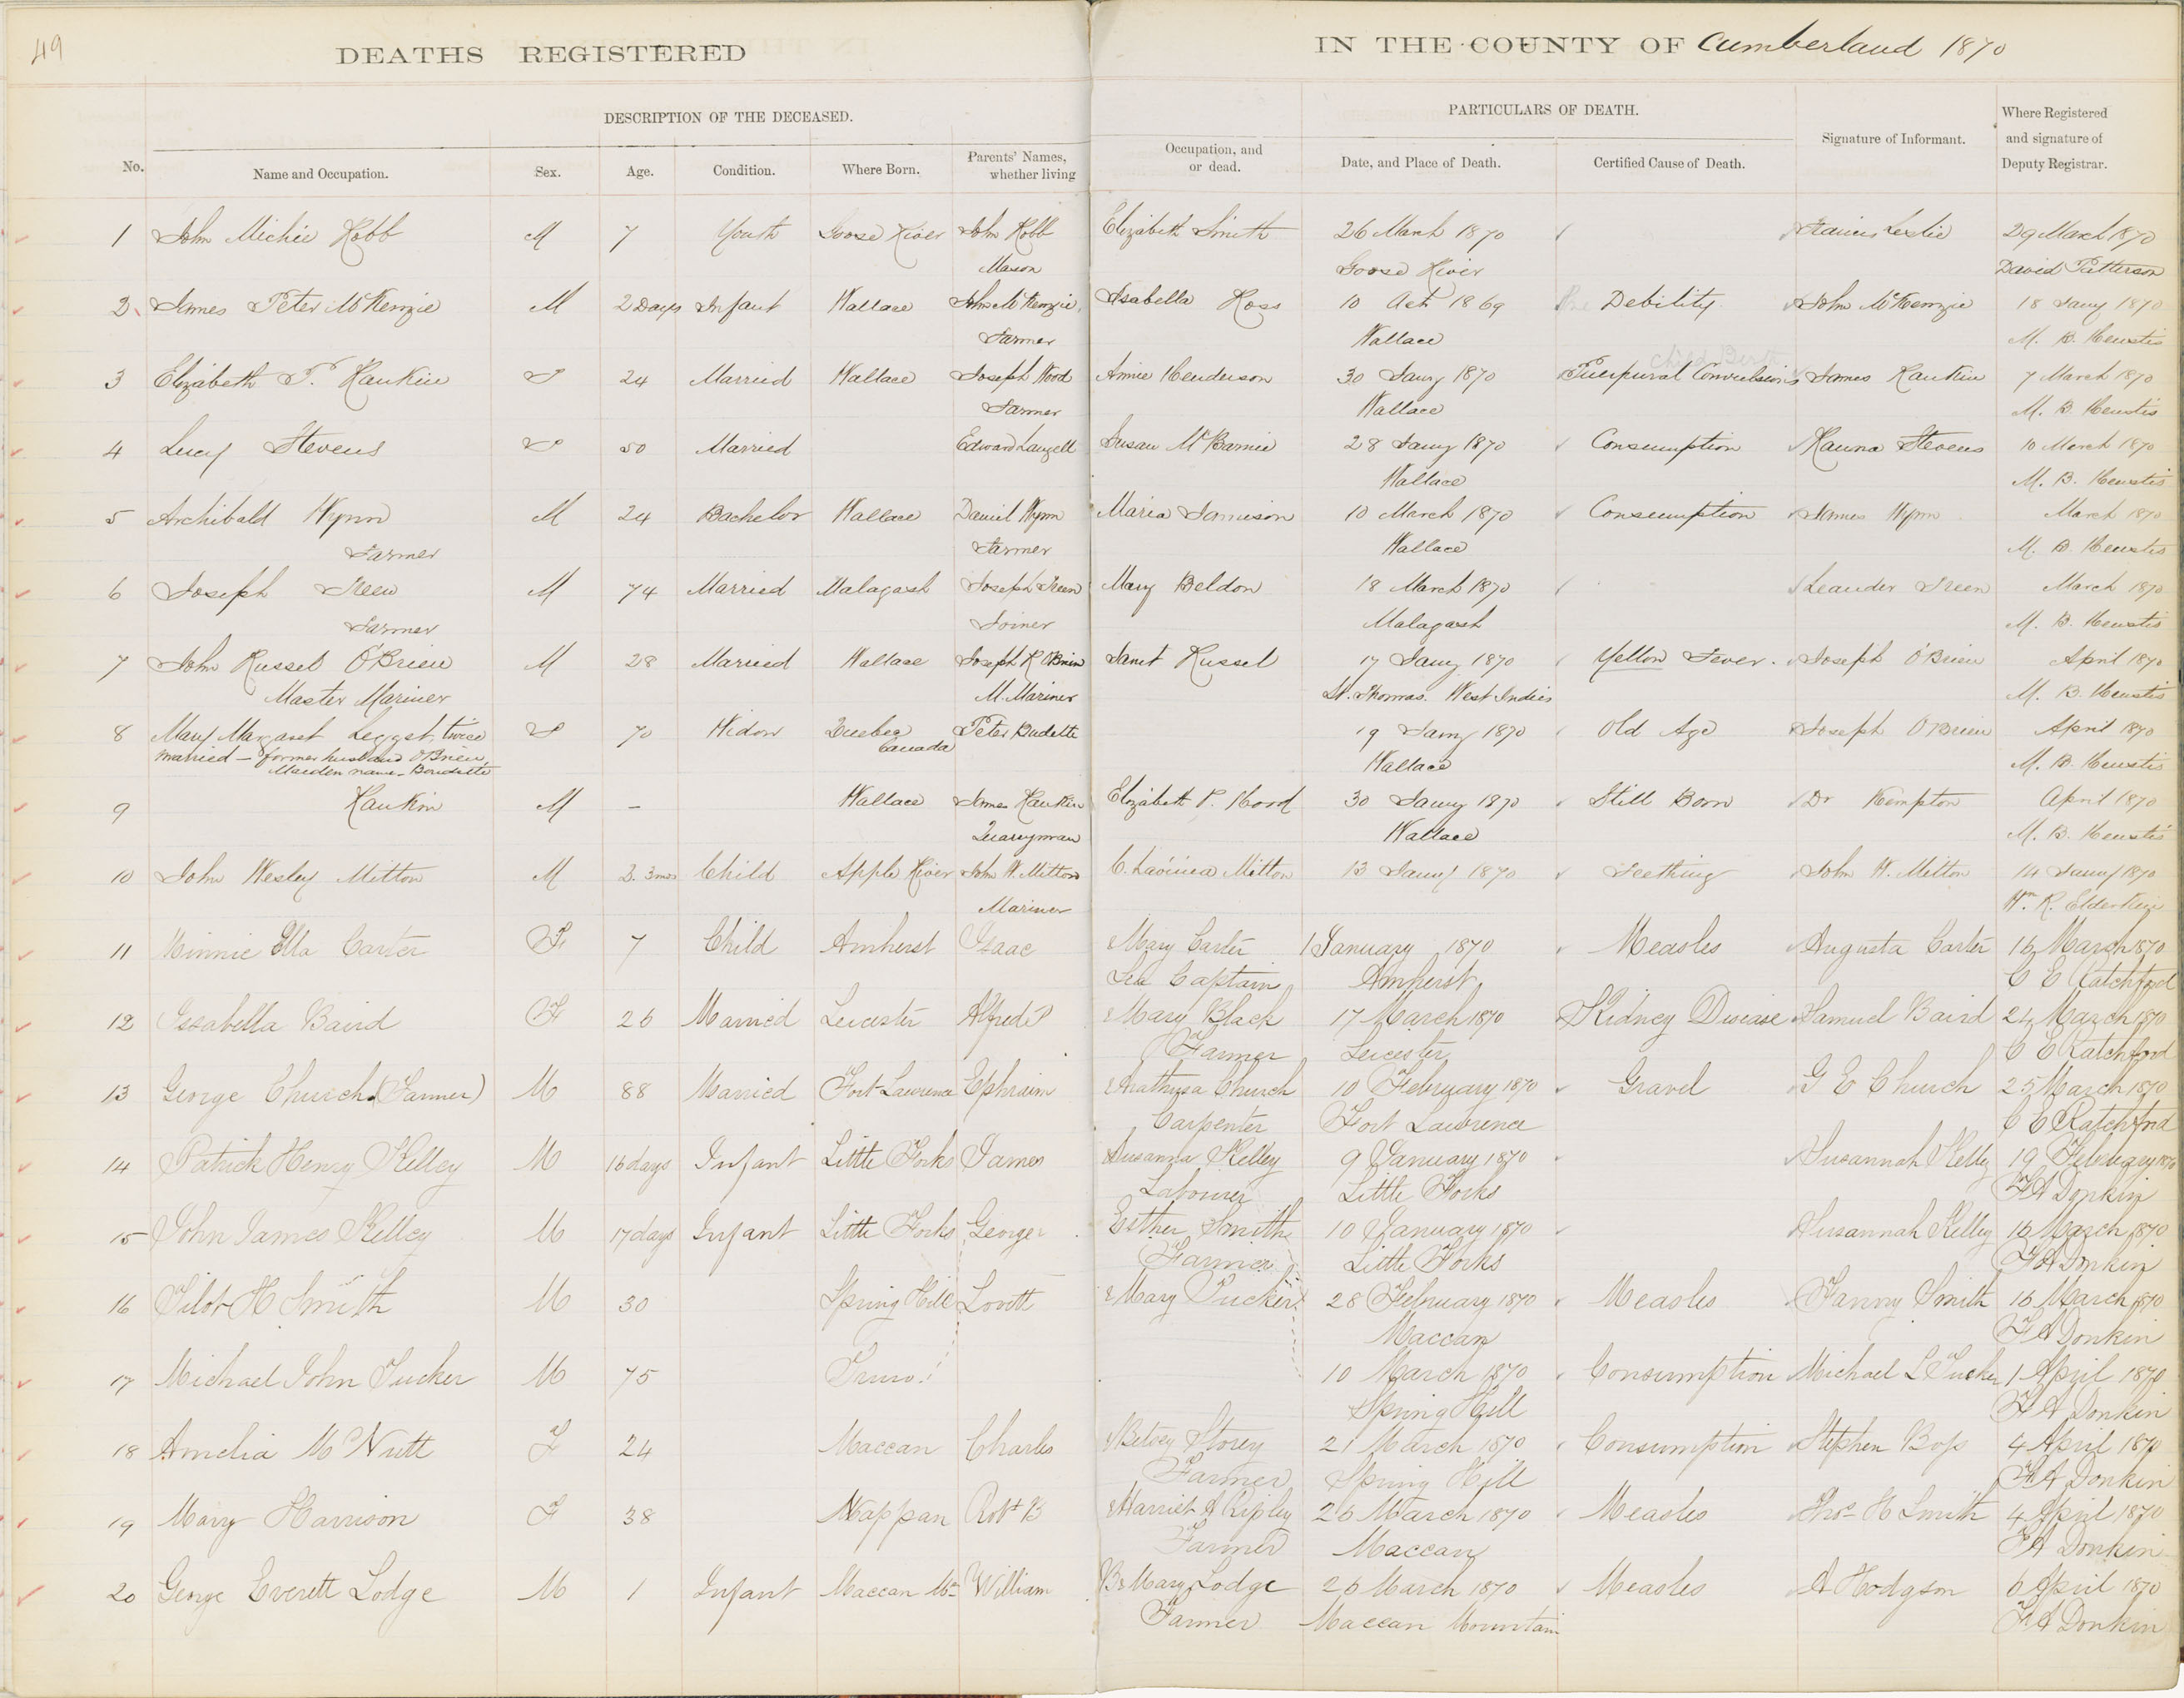 49
DEATHS REGISTERED IN THE COUNTY OF Cumberland 1870
DESCRIPTION OF THE DECEASED. PARTICULARS OF DEATH.
No. Name and Occupation. Sex. Age. Condition. Where Born. Parents' Names, whether living Occupation, and or dead. Date, and Place of Death. Certified Cause of Death. Signature of Informant. Where Registered and signature of Deputy Registrar.
1 John Michie Robb M 7 Youth Goose River John Robb Elizabeth Smith 26 March 1870 Francis Leslie 29 March 1870
Mason Goose River David Patterson
2 James Peter McKenzie M 2 Days Infant Wallace John McKenzie Isabella Ross 10 Oct 1869 Debility John McKenzie 18 Jany 1870
Farmer Wallace M. B. Heustis
Child Birth
3 Elizabeth P. Rankin F 24 Married Wallace Joseph Wood Annie Henderson 30 Jany 1870 Puerpural Convulsions James Rankin 7 March 1870
Farmer Wallace M. B. Heustis
4 Lucy Stevens F 50 Married Edward Susan 28 Jany 1870 Consumption Stevens 10 March 1870
Wallace M. B. Heustis
5 Archibald Wynn M 24 Bachelor Wallace Daniel Wynn Maria Jamieson 10 March 1870 Consumption James Wynn March 1870
Farmer Farmer Wallace M. B. Heustis
6 Joseph Treen M 74 Married Malagash Joseph Treen Mary Beldon 18 March 1870 Leander Treen March 1870
Farmer Joiner Malagash M. B. Heustis
7 John Russel O'Brien M 28 Married Wallace Joseph R O'Brien Janet Russel 17 Jany 1870 Yellow Fever. Joseph O'Brien April 1870
Master Mariner M. Mariner St. Thomas. West Indies M. B. Heustis
8 Mary Margaret twice F 70 Widow Quebec Peter Budette 19 Jany 1870 Old Age Joseph O'Brien April 1870
married – former husband O'Brien, Canada Wallace M. B. Heustis
Maiden name – Boudette
9 Rankin M – Wallace James Rankin Elizabeth P. Hood 30 Jany 1870 Still Born Dr Kempton April 1870
Quarryman Wallace M. B. Heustis
10 John Wesley Mitton M 2. 3mos Child Apple River John W. Mitton C. Lavinia Mitton 13 Jany 1870 Teething John W. Mitton 14 Jany 1870
Mariner Wm R. Elderkin
11 Minnie Ella Carter F 7 Child Amherst Isaac & Mary Carter 1 January 1870 Measles Augusta Carter 16 March 1870
Sea Captain Amherst C E Ratchford
12 Issabella Baird F 26 Married Leicester Alfred P & Mary Black 17 March 1870 Kidney Disease Samuel Baird 24 March 1870
Farmer Leicester C E Ratchford
13 George Church (Farmer) M 88 Married Fort Lawrence Ephraim & Arathusa Church 10 February 1870 Gravel G E Church 25 March 1870
Carpenter Fort Lawrence C E Ratchford
14 Patrick Henry Kelley M 16 days Infant Little Forks James Susanna Kelley 9 January 1870 Susannah Kelley 19 February 1870
Labourer Little Forks F A Donkin
15 John James Kelley M 17 days Infant Little Forks George Esther Smith 10 January 1870 Susannah Kelley 16 March 1870
Farmer Little Forks F A Donkin
16 Pilot H Smith M 30 Spring Hill Lovitt & Mary Tucker 28 February 1870 Measles Fanny Smith 16 March 1870
Maccan F A Donkin
17 Michael John Tucker M 75 Truro 10 March 1870 Consumption Michael L Tucker 1 April 1870
Spring Hill F A Donkin
18 Amelia McNutt F 24 Maccan Charles & Betsey Storey 21 March 1870 Consumption Stephen Boss 4 April 1870
Farmer Spring Hill F A Donkin
19 Mary Harrison F 38 Nappan Robt B & Harriet A Ripley 26 March 1870 Measles Thos H Smith 4 April 1870
Farmer Maccan F A Donkin
20 George Everett Lodge M 1 Infant Maccan Mtn William B & Mary Lodge 26 March 1870 Measles A Hodgson 6 April 1870
Farmer Maccan Mountain F A Donkin